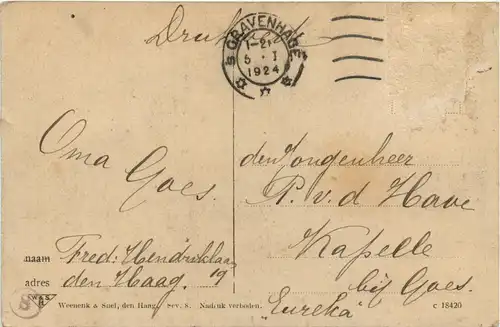 Drukwerk
'S GRAVENHAGE
1-2
5 · I
1924
Oma
Goes.
den Jongenheer
P. v. d Have
Kapelle
bij Goes.
"Eureka"
naam Fred: Hendriklaan
adres den Haag. 19
Weenenk & Snel, den Haag. Sev. 8. Nadruk verboden. c 18420